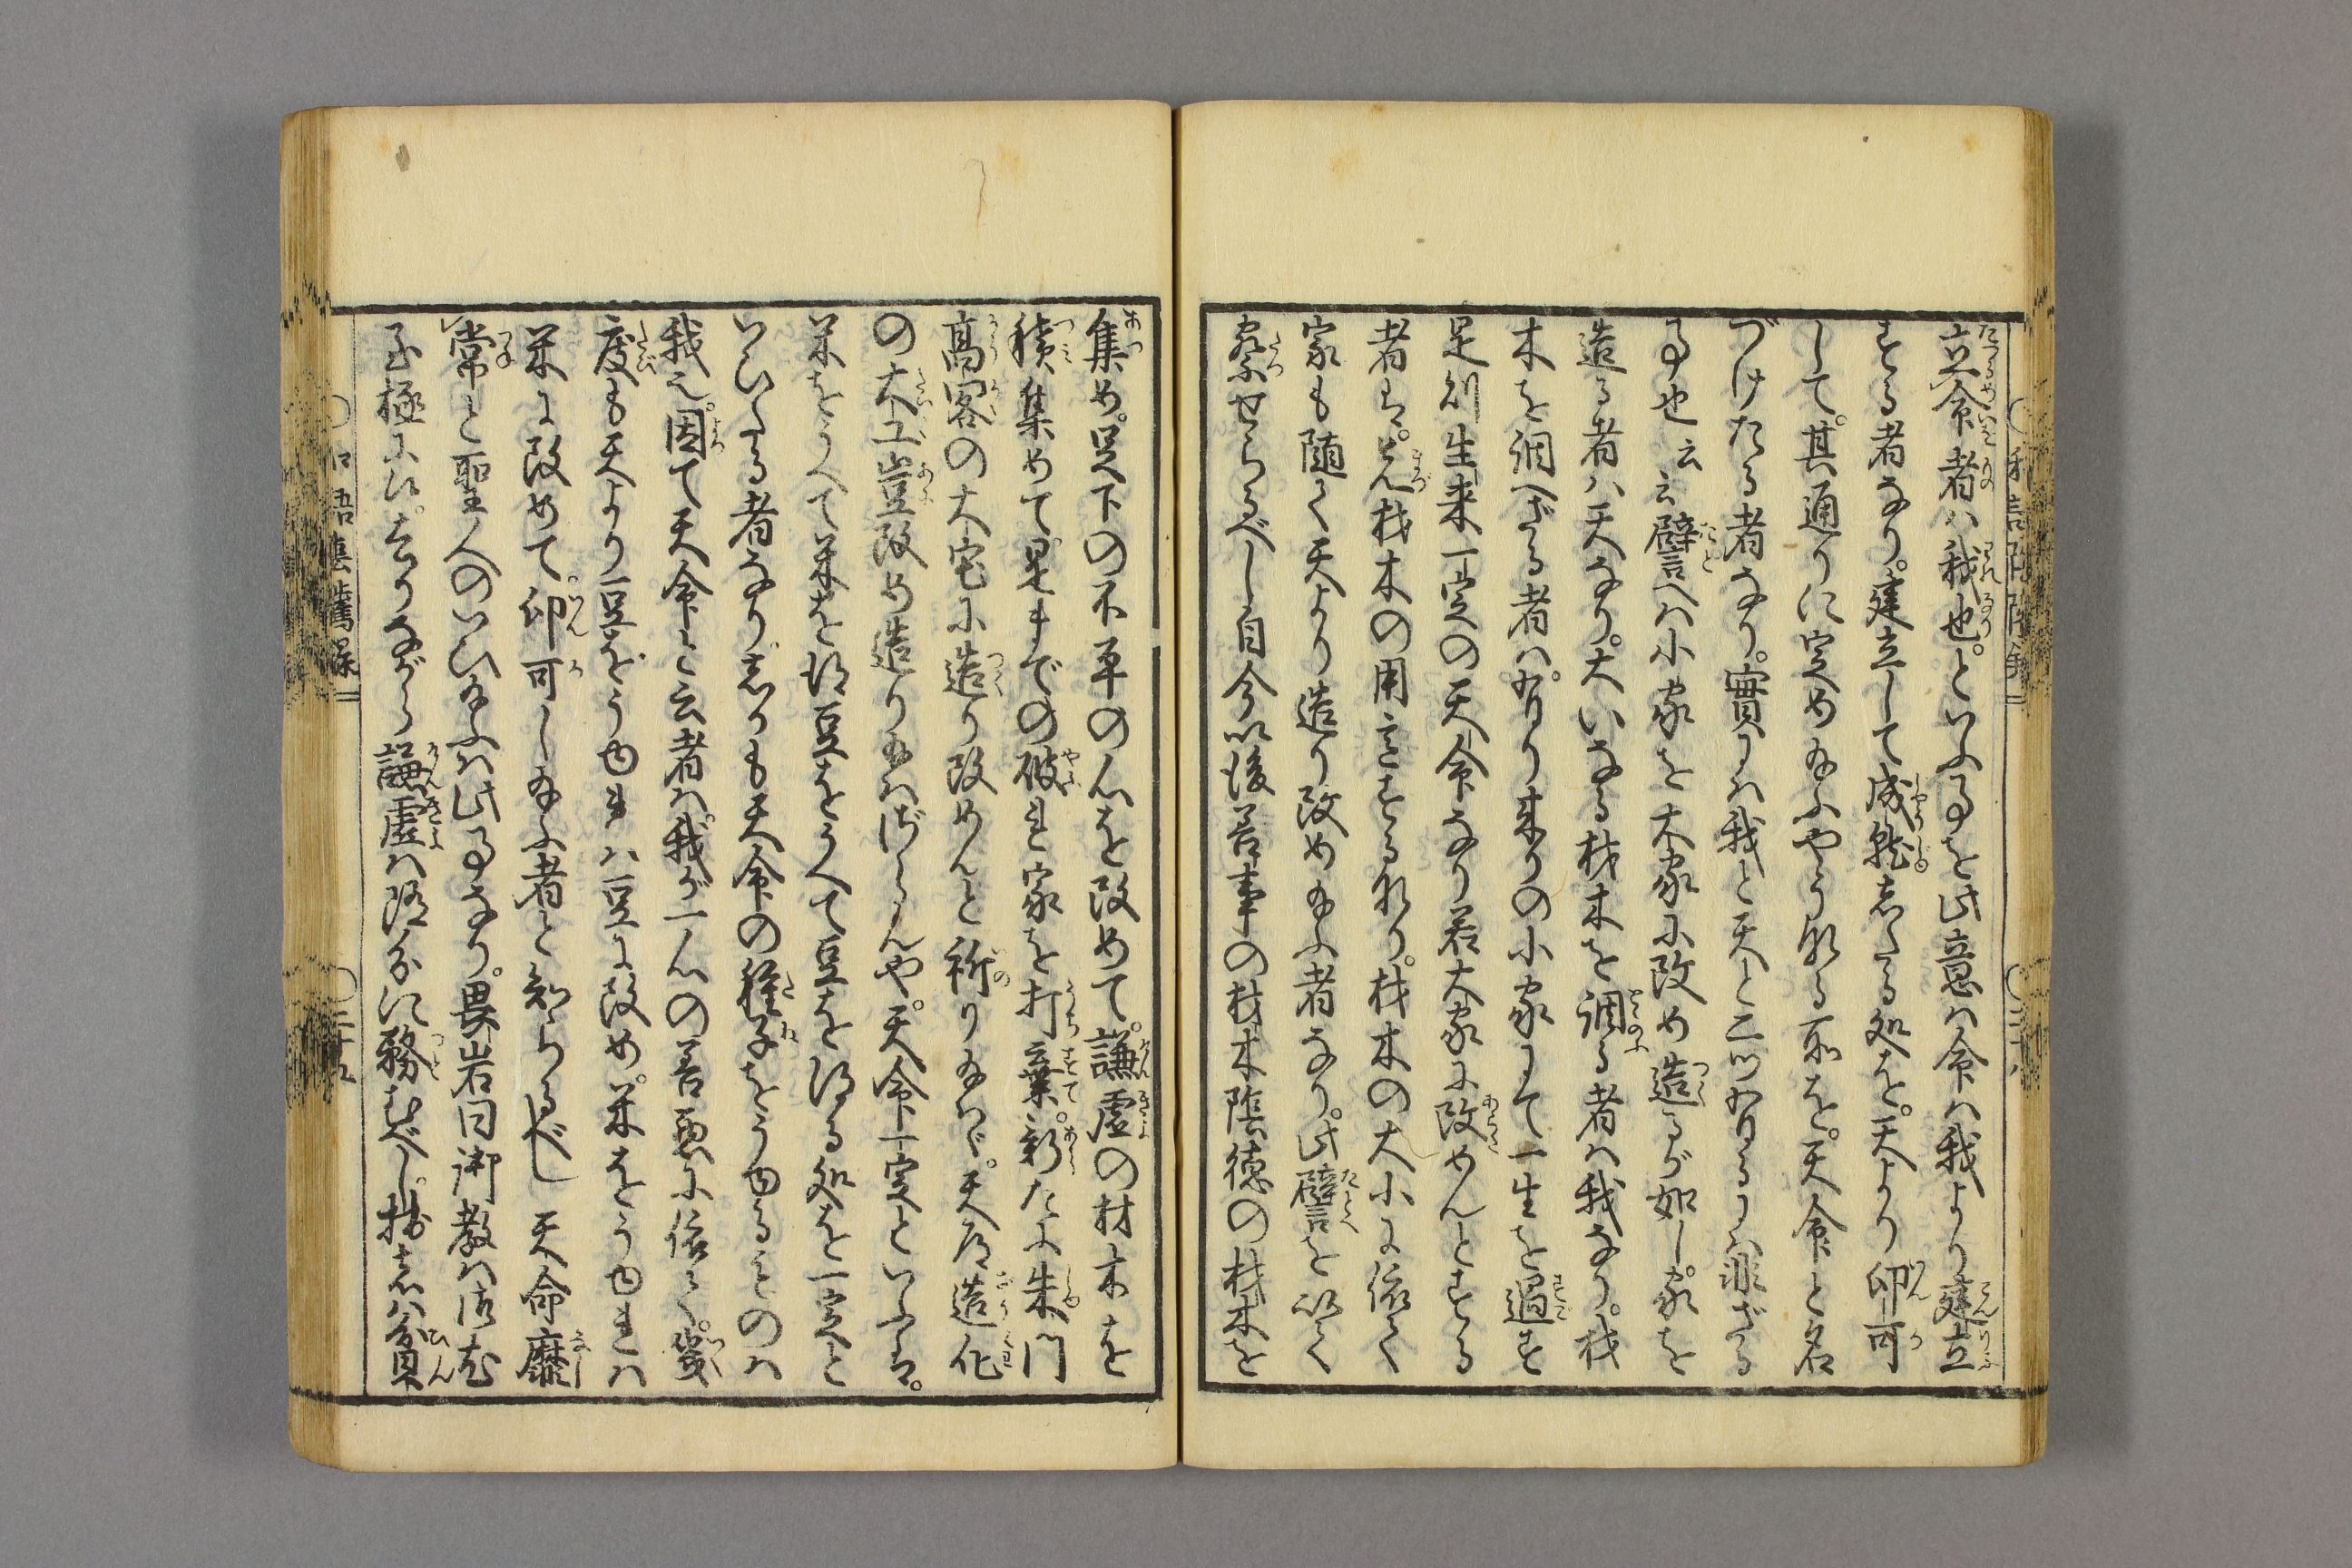 立命者ハ我也。といふ事を此意ハ命ハ我より建立
する者なり。建立して成就したる処を。天より印可
して。其通りに定め給ふやう成る所を。天命と名
づけたる者なり。實にハ我と天と二ツ有るにハ非ざる
事也云云譬へハ小家を大家に改め造るが如し。家を
造る者ハ天なり。大いなる材木を調る者ハ我なり。材
木を調へざる者ハ。有り来りの小家にて一生を過す
是則生来一定の天命なり若大家に改めんとする
者は。先材木の用意をする也。材木の大小に依て
家も随て天より造り改め給ふ者なり。此譬を以て
察せらるべし自今以後善事の材木陰徳の材木を
集め。足下の不平の心を改めて。謙虚の材木を
積集めて。是までの破れ家を打棄。新たに朱門
高客の大宅に造り改めんと祈り給ハゞ。天道造化
の大工豈改め造り給はざらんや。天命一定といふは。
米をうへて米を得豆をうへて豆を得る処を一定と
いひたる者なり。しかも天命の種子をうゆるものハ
我也。因て天命と云者ハ。我が一心の善悪に依て。幾
度も天より豆をうゆれハ豆に改め。米をうゆれハ
米に改めて。印可し給ふ者と知らるべし天命靡
常と聖人のいひ給ふハ此事なり。畏岩曰御教ハ御尤
至極に候。去りながら謙虚ハ随分に務むべし。拙者ハ貧